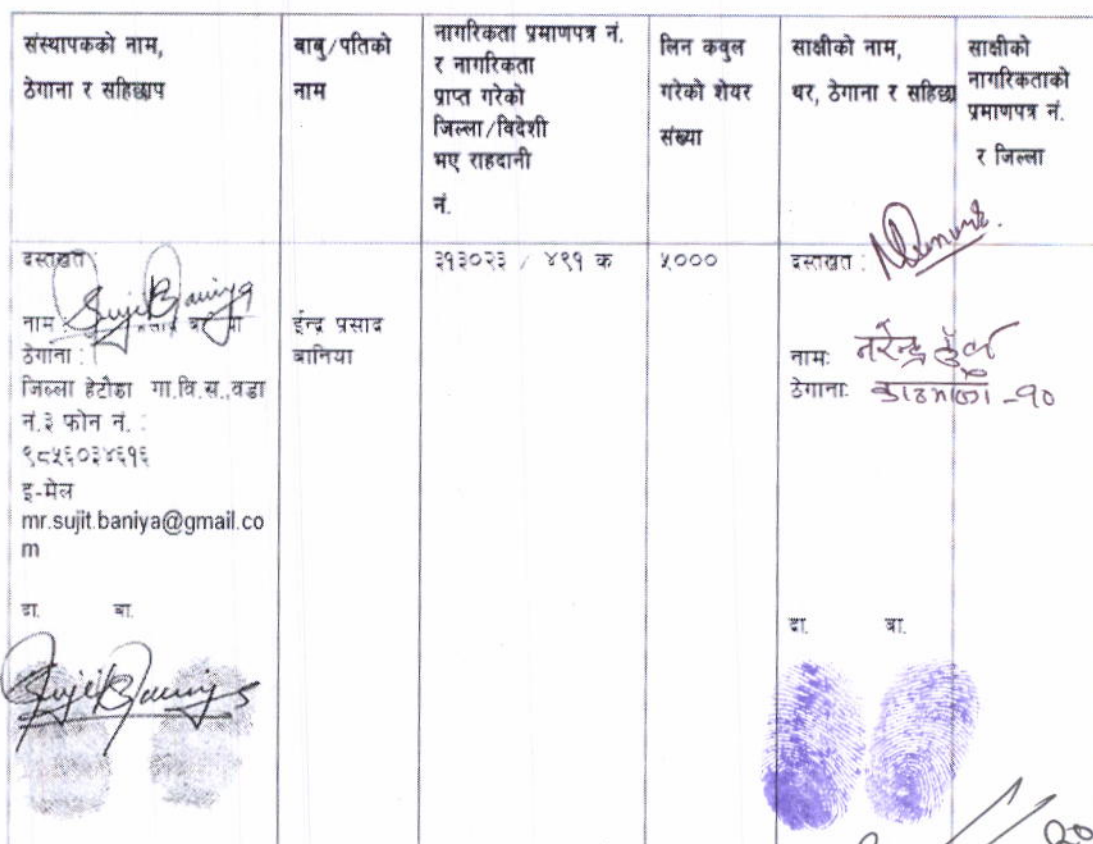 संस्थापकको नाम,
ठेगाना र सहिछाप
बाबु/पतिको
नाम
नागरिकता प्रमाणपत्र नं.
र नागरिकता
प्राप्त गरेको
जिल्ला/विदेशी
भए राहदानी
नं.
लिन कबुल
गरेको शेयर
संख्या
साक्षीको नाम,
थर, ठेगाना र सहिछा
साक्षीको
नागरिकताको
प्रमाणपत्र नं.
र जिल्ला
दस्तखत :
Sujit Baniya
नाम :
ठेगाना :
जिल्ला हेटौडा गा.वि.स.,वडा
नं.३ फोन नं. :
९८५६०३४६१६
इ-मेल
mr.sujit.baniya@gmail.co
m
दा. बा.
Sujit Baniya
ईन्द्र प्रसाद
बानिया
३१३०२३ / ४९१ क
५०००
दस्तखत :
नाम: नरेन्द्र
ठेगाना: काठमाडौं -१०
दा. बा.